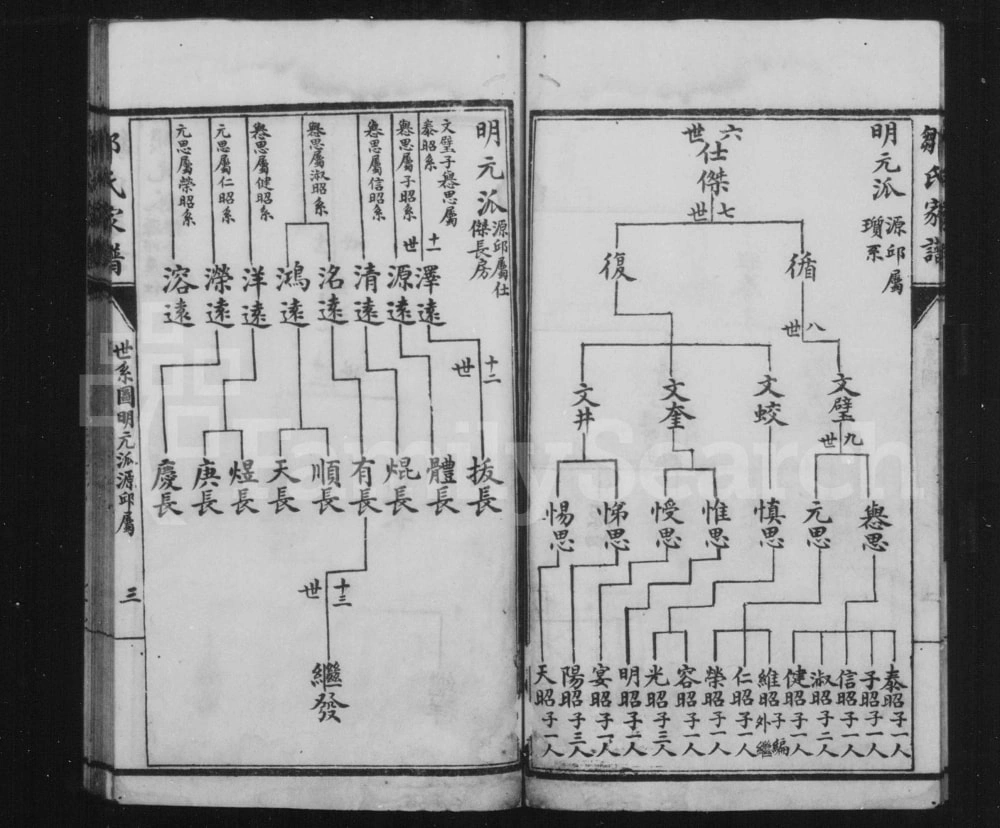 鄒氏家譜
明元派
源邱屬
瓚系
六世
仕傑
七世
循
復
八世
文璧
文蛟
文奎
文井
九世
思譽
思元
思慎
思惟
思懮
思悌
思惕
泰昭子一人
子昭子一人
信昭子一人
淑昭子二人
健昭子一人
維昭子外繼編
仁昭子一人
榮昭子一人
容昭子一人
光昭子三人
明昭子一人
宴昭子一人
陽昭子三人
天昭子一人
明元派
源邱屬仕
傑長房
文璧子譽思屬
泰昭系
譽思屬子昭系
譽思屬信昭系
譽思屬淑昭系
譽思屬健昭系
元思屬仁昭系
元思屬榮昭系
十一世
澤遠
源遠
清遠
洺遠
鴻遠
洋遠
濚遠
溶遠
十二世
拔長
體長
焜長
有長
順長
天長
煜長
庚長
慶長
十三世
繼發
世系圖明元派源邱屬
三